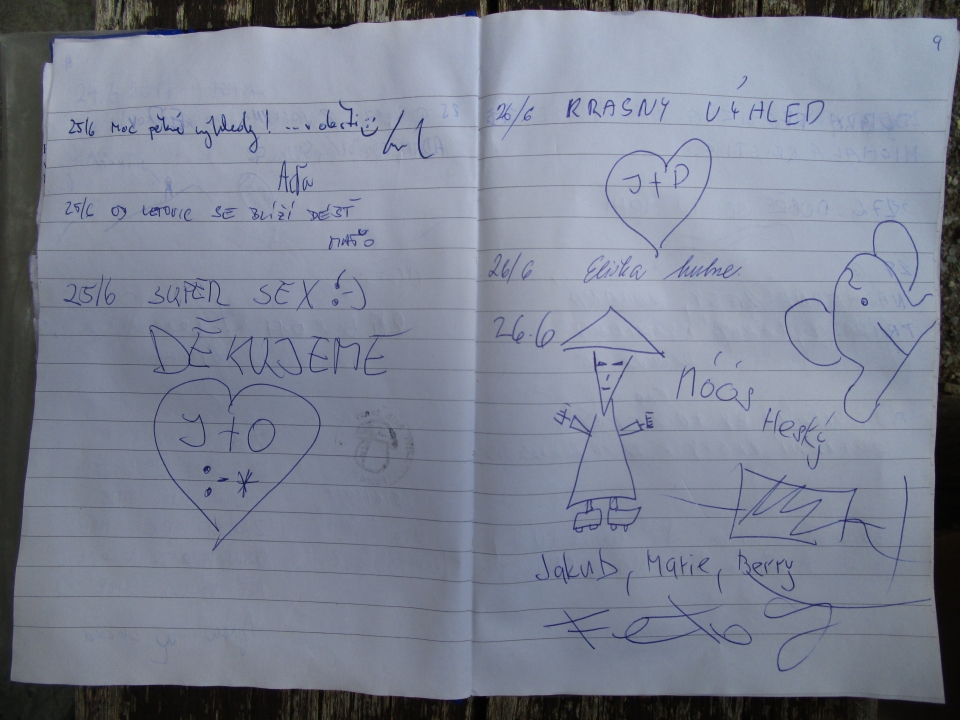 25/6 Moc pěkné výhledy! ... v dešti
Aďa
25/6 OD LETOVIC SE BLÍŽÍ DÉŠŤ
MAŤO
25/6 SUPER SEX :-)
DĚKUJEME
J+O
:-*
9
26/6 KRASNY VÝHLED
J+P
26/6 Eliška
26.6
Nóós
Heský
Jakub, Marie, Berry